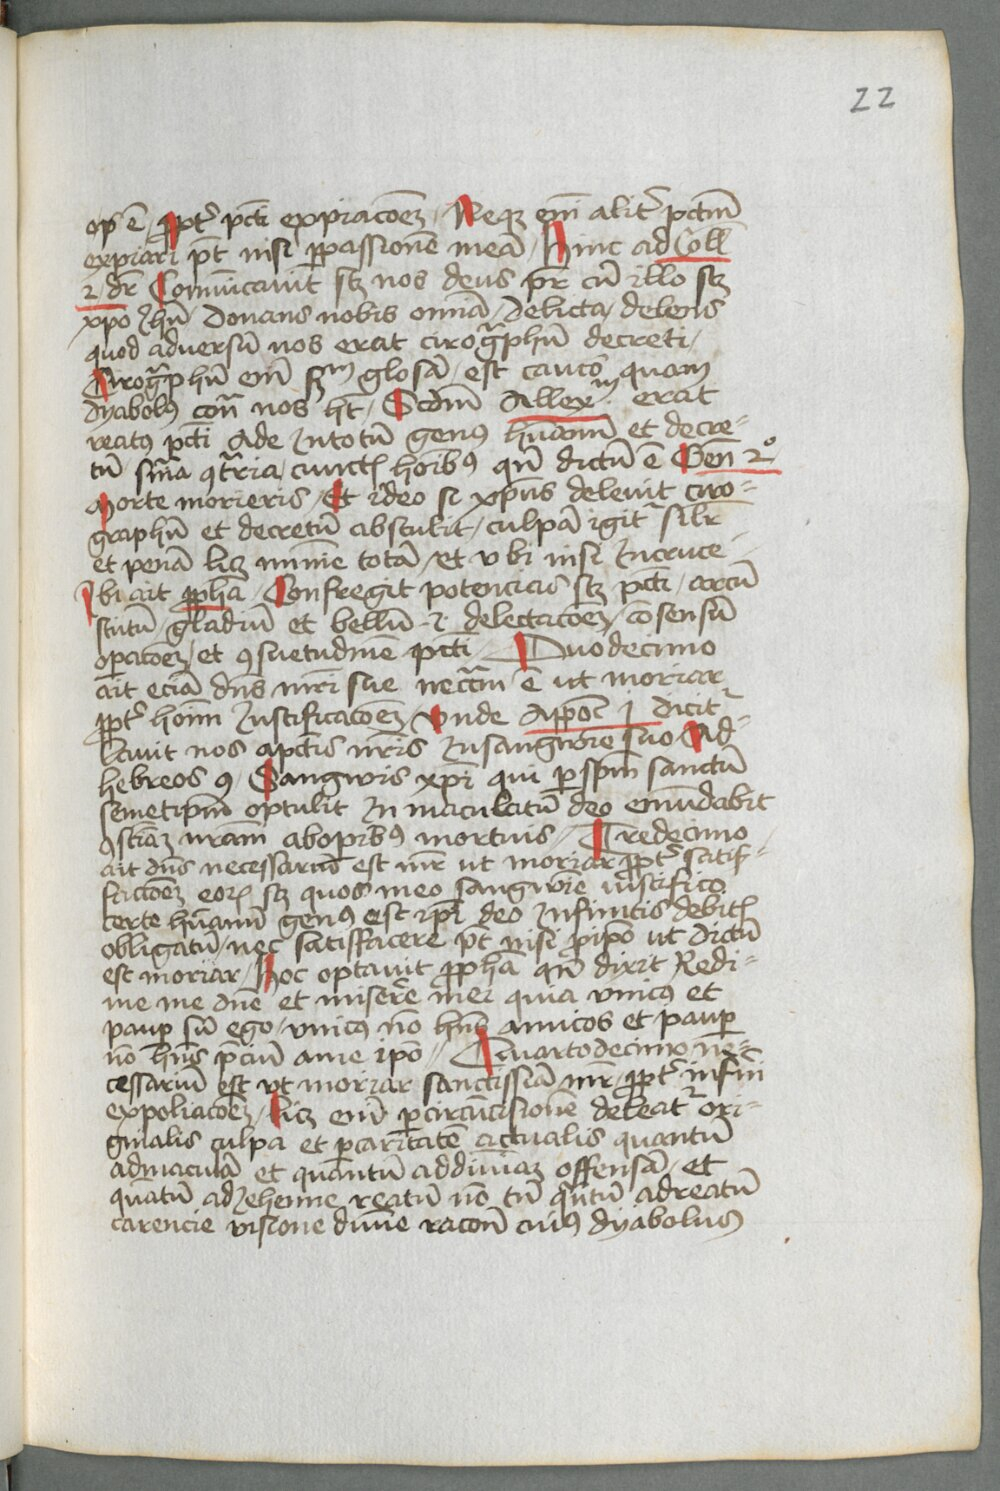 22
op̄ ē ꝓpt᷑ pcti expiacoēȝ Neqȝ em̄ alit᷑ pctm̄
expiari pt̄ nisi ꝑ passionē meā Hinc ad Coll̄
2 dr̄ Conuiuicauit sȝ nos deus pr̄ cū illo sȝ
xp̄o Jhū donans nobis omnia delicta delens
quod adversū nos erat cirogͣphū decreti
Cirogͣphū em̄ scd̄m glosā est caucō quam
dyabolꝰ conͣ nos ht̄ Scdm̄ Allexm̄ erat
reatꝰ pcti Ade in totū genꝰ hūanū et decre-
tū sn̄ia ꝯtͣria cunctꝭ hoībꝰ qn̄ dictū ē Gen̄ 2°
Morte morieris Et ideo si xp̄us deleuit ciro-
graphū et decretū abstulit culpā igit᷑ silr̄
et penā licȝ mīme totā et vbi nisi in cruce
Vbi ait ꝓph̄a Confregit potencias sȝ pcti arcū
scutū gladiū et bellū .i. delectacoēȝ cōsensū
opacoēȝ et ꝯsuetudinē pcti Duodecimo
ait eciā dn̄s mr̄i sue nec̄c̄m ē ut moriar
ꝓpt᷑ hoīm iustificacoēȝ Vnde Appoc̄ j dicit᷑
Lauit nos a pctīs nr̄is in sangwīe suo Ad
hebreos 9 Sangwis xp̄i qui per spm̄ sanctū
semetipm̄ optulit in maculatū deo emūdabit
ꝯsciāȝ nr̄am ab opibꝰ mortuis Tredecimo
ait dn̄s necessariū est mr̄ ut moriar ꝓpt᷑ satis-
faccoēȝ eoꝝ sȝ quos meo sangwīe iustifico
certe hūanū genꝰ est ip̄i deo infinitis debitꝭ
obligatū nec satisfacere pt̄ nisi p ip̄o ut dictū
est moriar Hoc optauit ꝓph̄a qn̄ dixit Redi-
me me dn̄e et miserē mei quia vnicꝰ et
paup sū ego vnicꝰ nō hn̄s amicos et paup
nō hn̄s p̄ciū a me ip̄o Quartodecimo ne-
cessariū est vt moriar sanctissīa mr̄ ꝓpt᷑ infˀni
expoliacoēȝ licȝ em̄ ꝑ circūcisionē deleat᷑ ori-
ginalis culpa et ꝑ caritatē actualis quantū
ad maculā et quantū ad diuināȝ offensā et
quātū ad Jehenne reatū nō tn̄ qͣntū ad reatū
carencie visione diuīe racōne cuiꝰ dyabolus